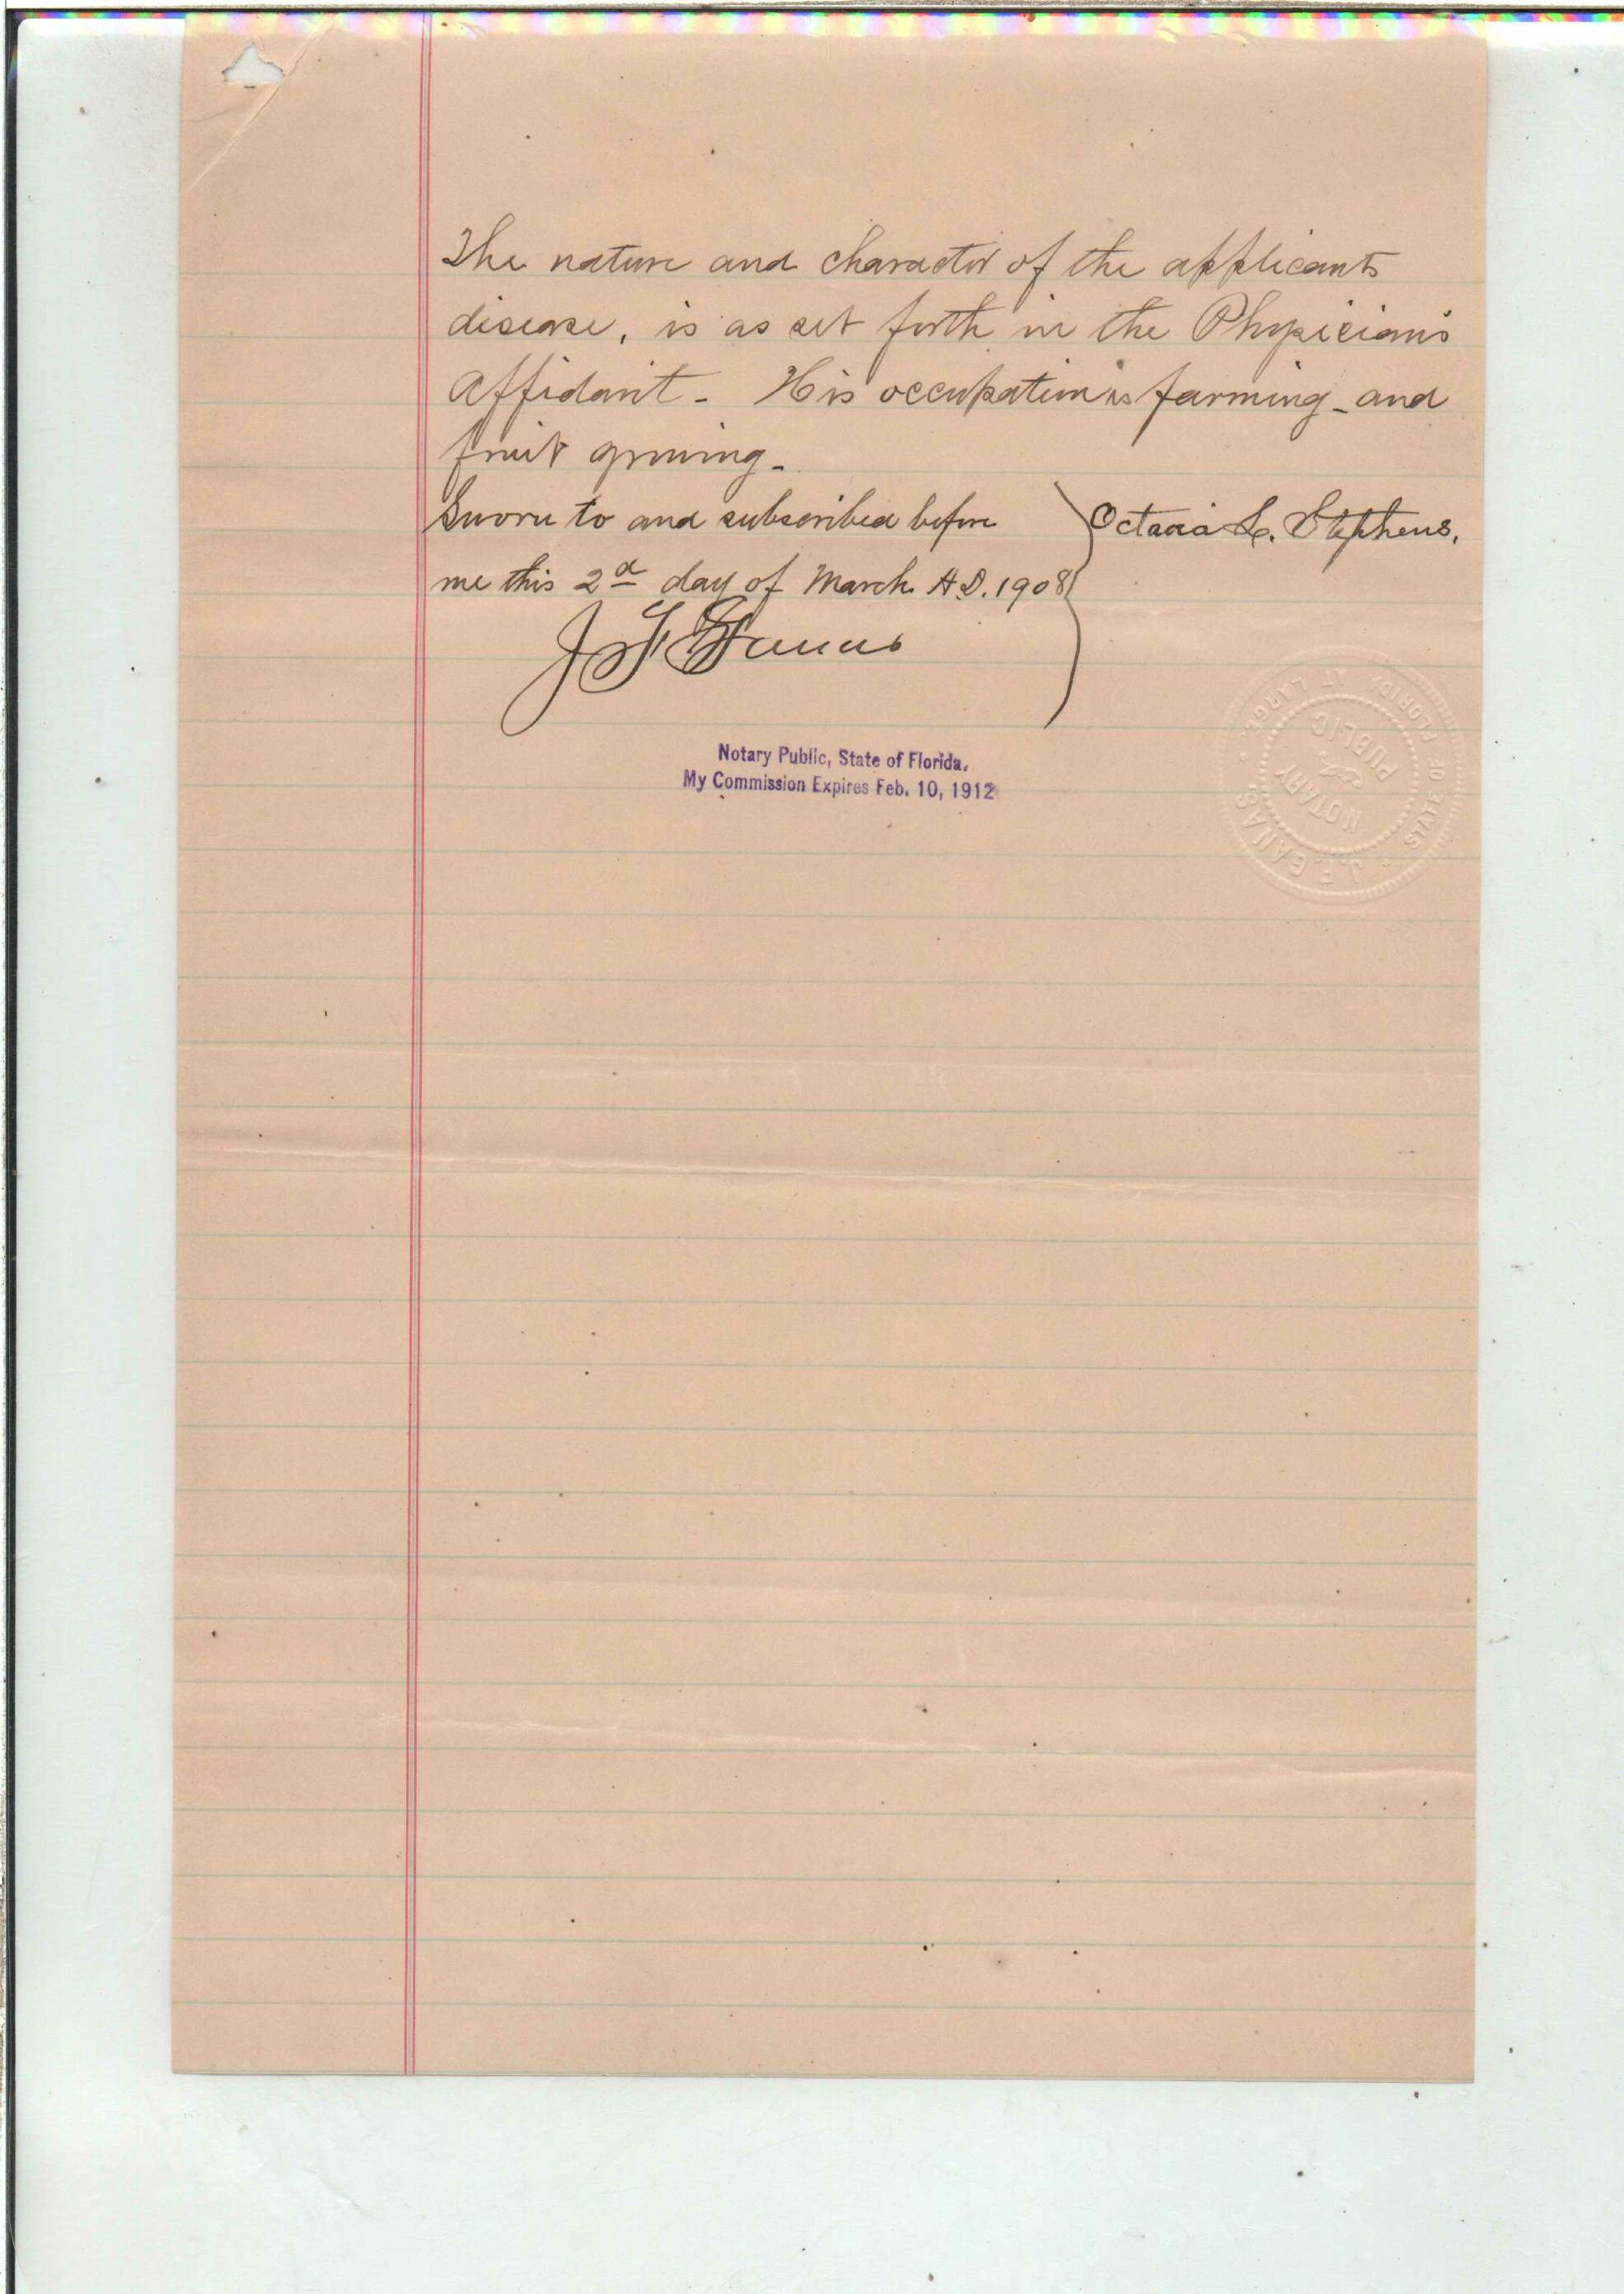 The nature and character of the applicants
disease, is as set forth in the Physicians
Affidavit - His occupation is farming - and
fruit growing -
Sworn to and subscribed before
me this 2d day of March A.D. 1908
Octavia L. Stephens.
Notary Public, State of Florida.
My Commission Expires Feb. 10, 1912
NOTARY
PUBLIC
STATE OF FLORIDA AT LARGE